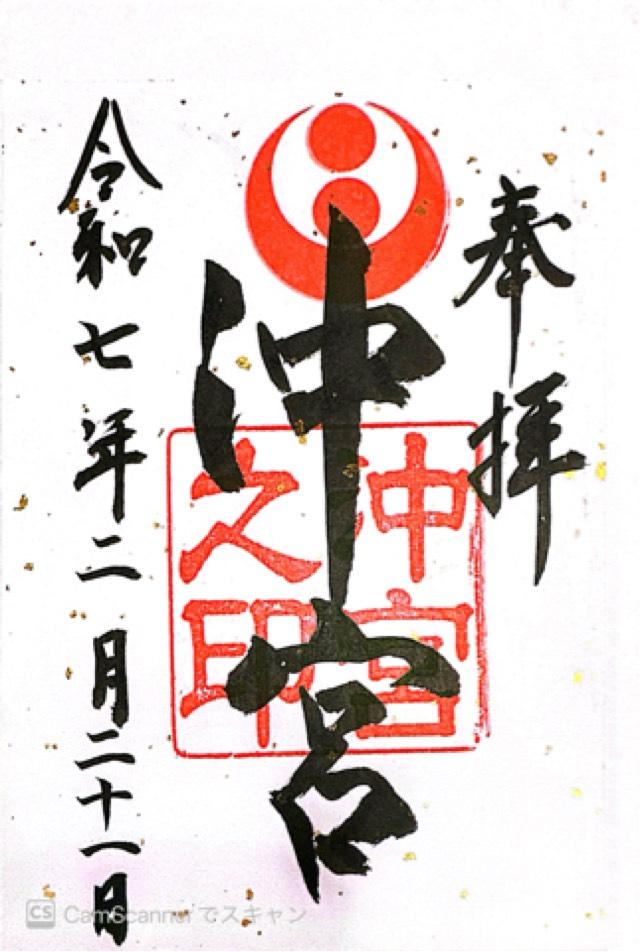 奉拝
沖宮
沖宮
之印
令和七年二月二十一日
CS CamScannerでスキャン